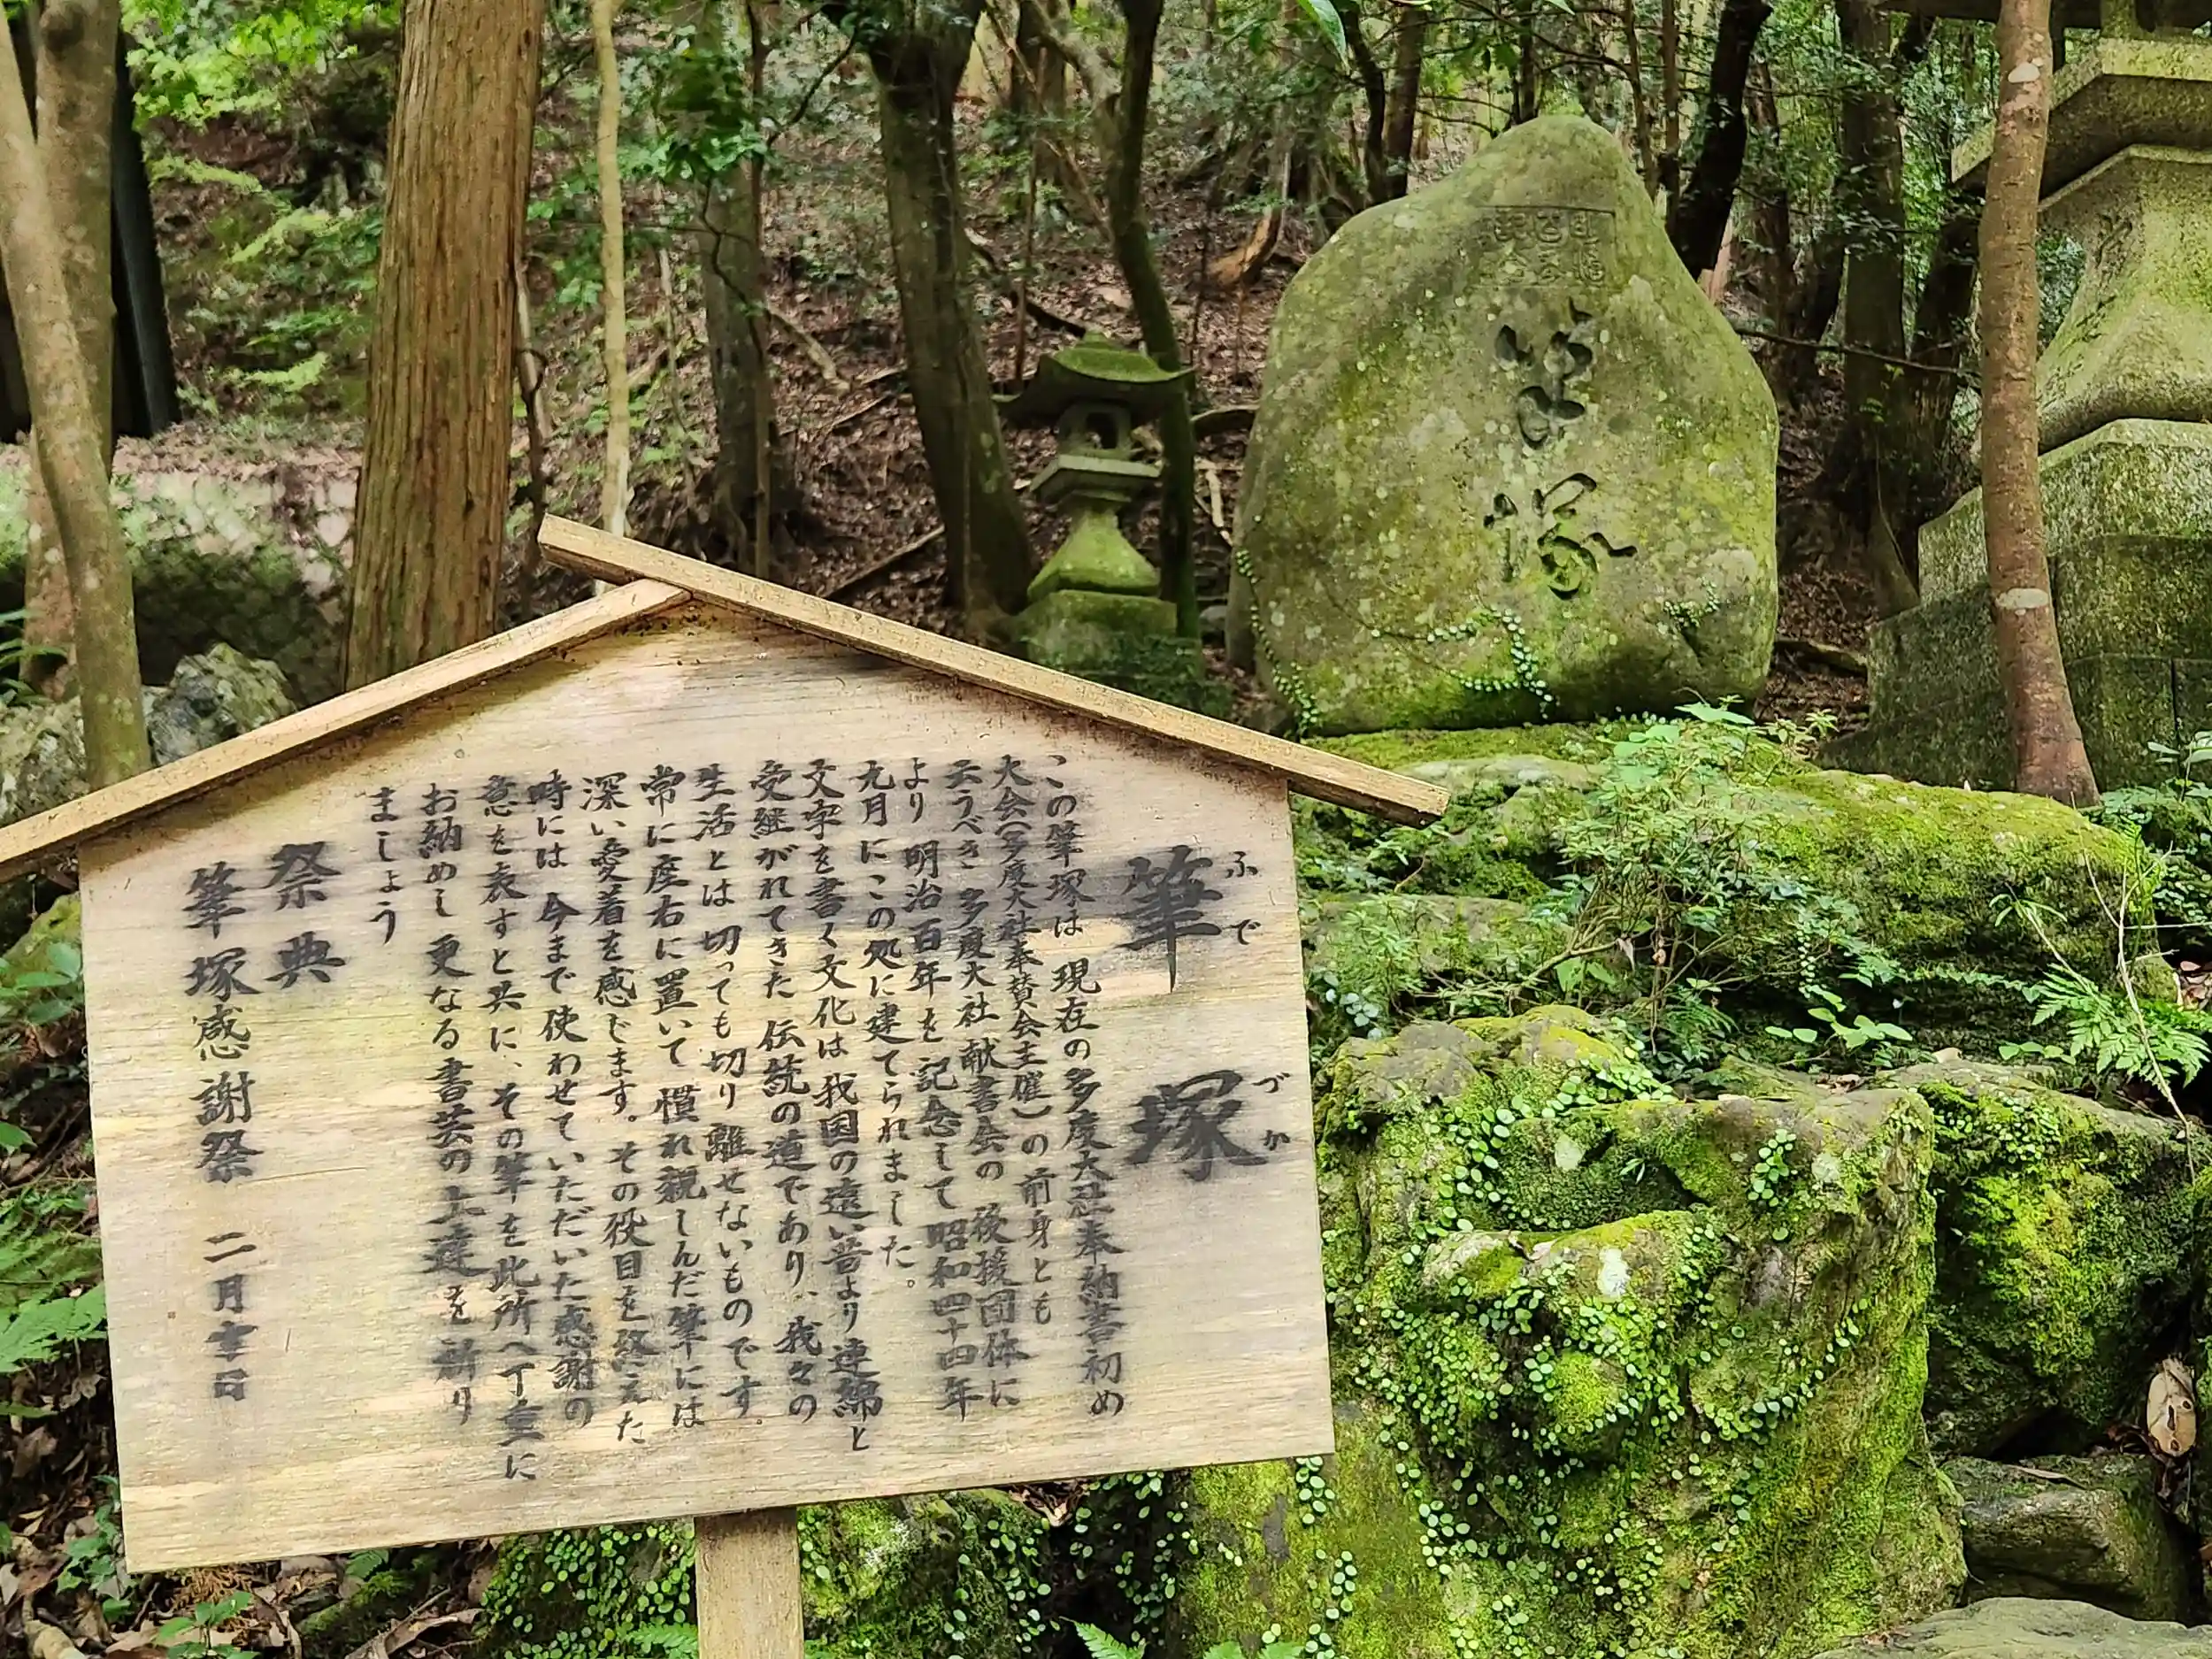 筆塚
ふでづか
この筆塚は 現在の多度大社奉納書初め
大会(多度大社奉賛会主催)の前身とも
云うべき 多度大社献書会の後援団体に
より 明治百年を記念して昭和四十四年
九月にこの処に建てられました。
文字を書く文化は我国の遠い昔より連綿と
受継がれてきた 伝統の道であり、我々の
生活とは 切っても切り離せないものです
常に座右に置いて 慣れ親しんだ筆には
深い愛着を感じます。その役目を終えた
時には 今まで使わせていただいた感謝の
意を表すと共に、その筆を此所へ丁重に
お納めし 更なる書芸の上達を祈り
ましょう
祭典
筆塚感謝祭 二月吉日
筆塚